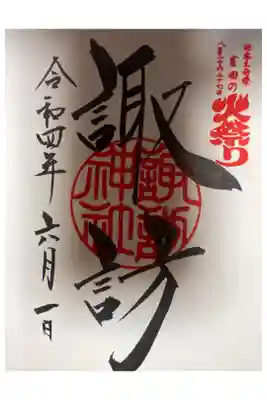 日本三奇祭
吉田の
火祭り
八月二十六日二十七日
諏訪
諏訪
神社
令和四年六月一日